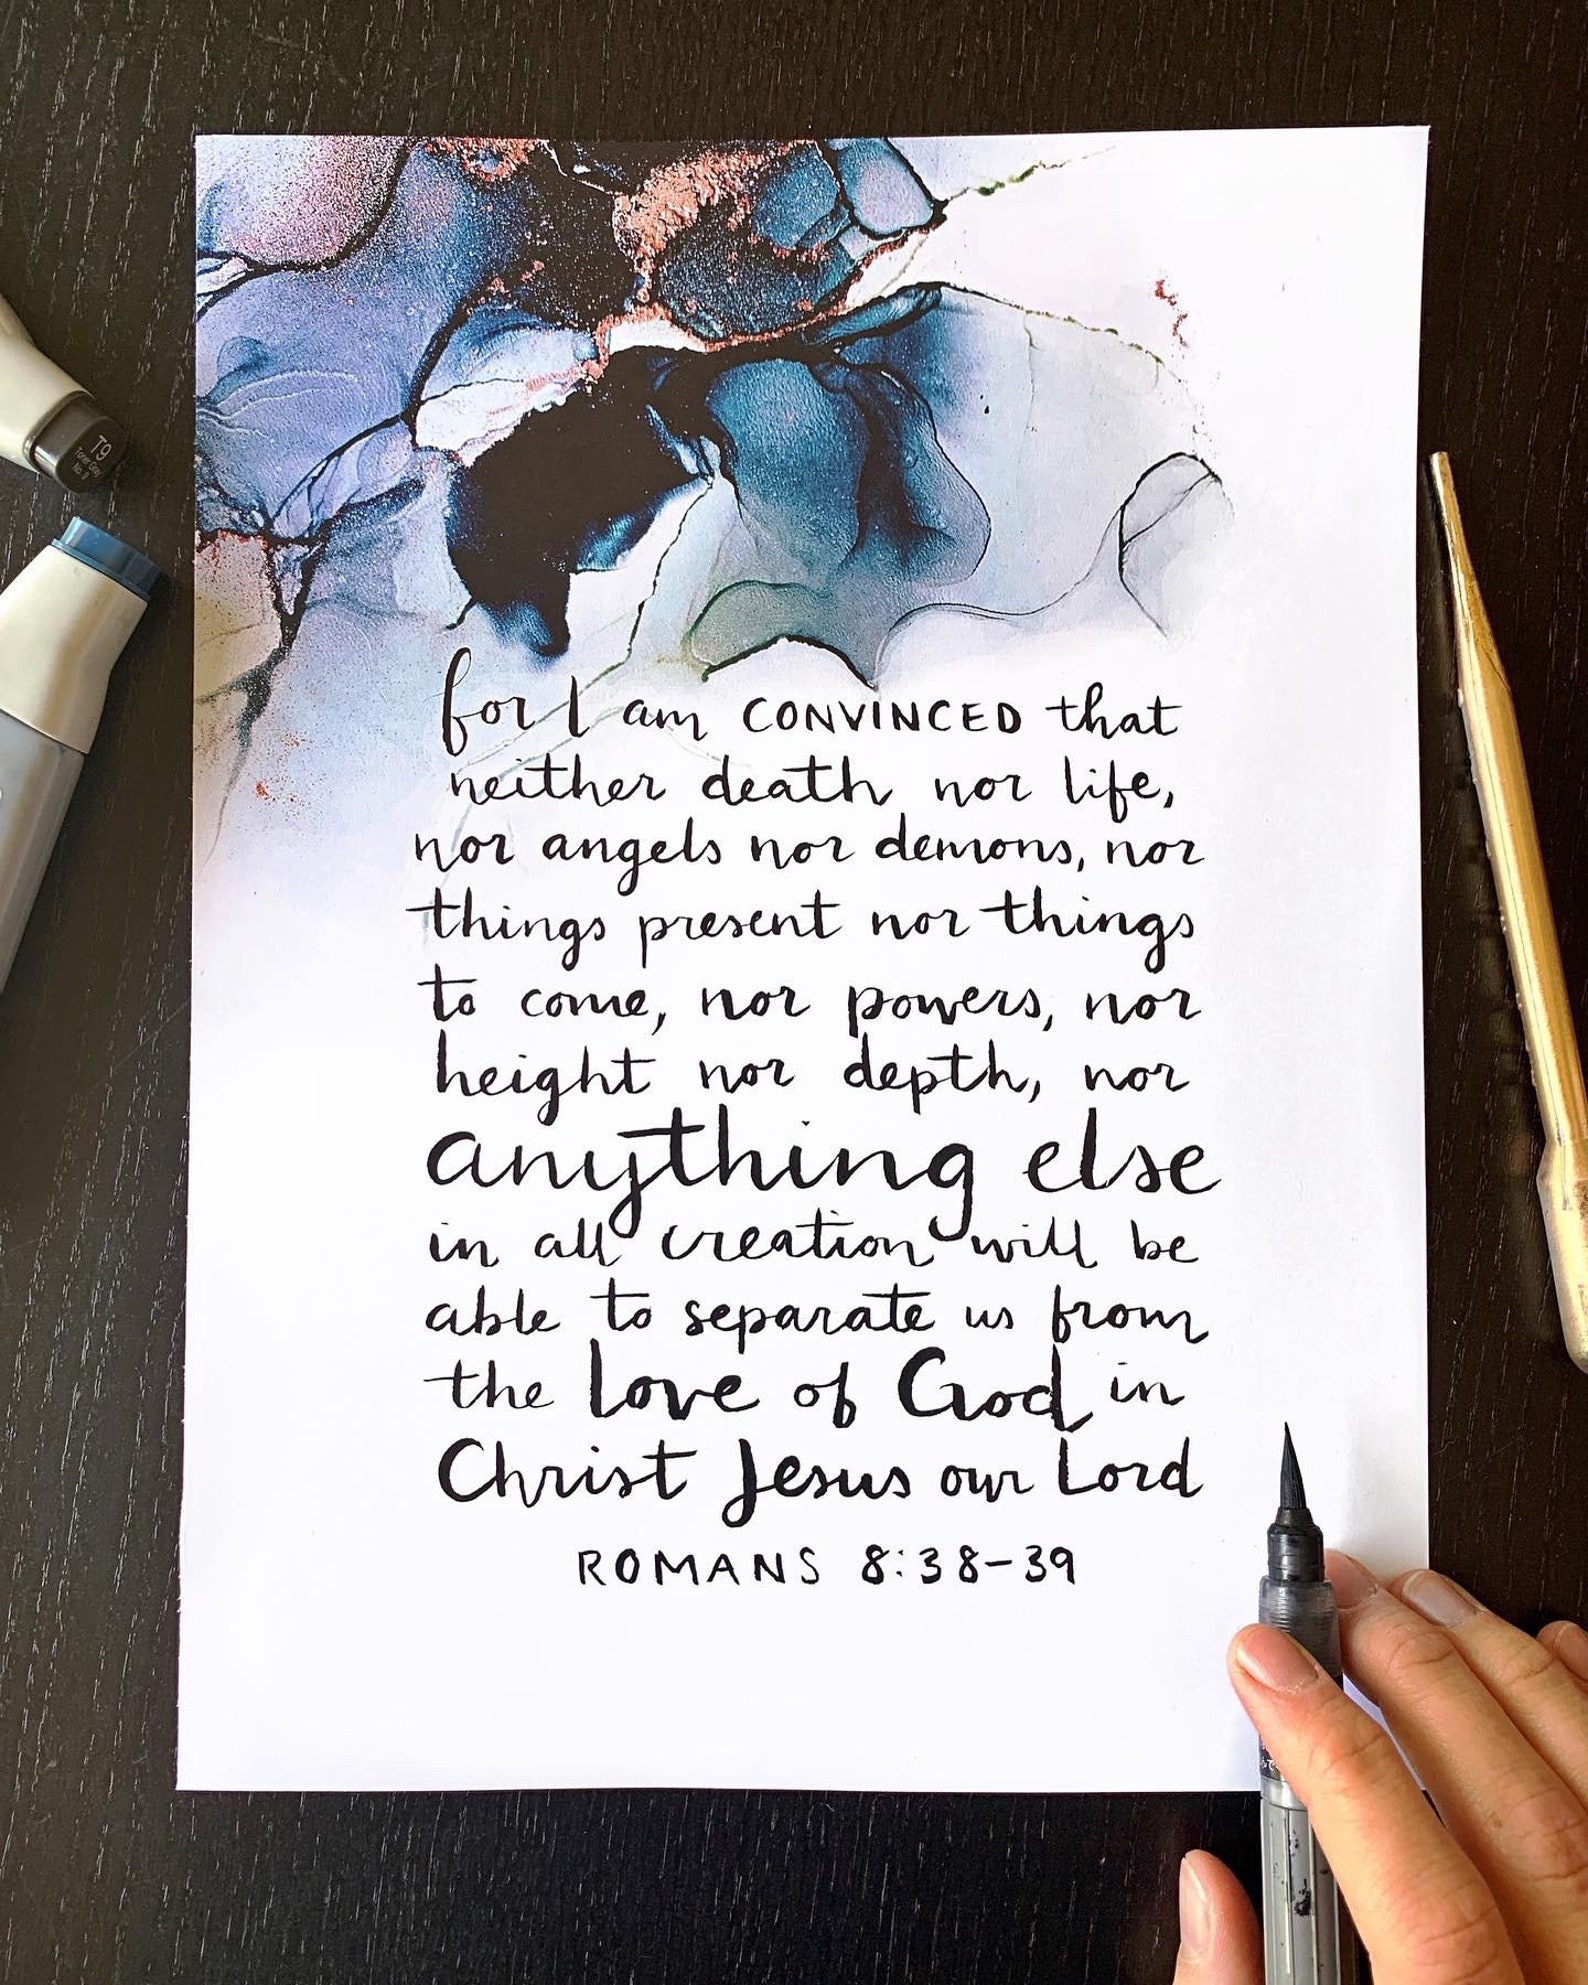 for I am CONVINCED that
neither death nor life,
nor angels nor demons, nor
things present nor things
to come, nor powers, nor
height nor depth, nor
anything else
in all creation will be
able to separate us from
the love of God in
Christ Jesus our Lord
ROMANS 8:38-39
T9
Toner Gray
No. 9